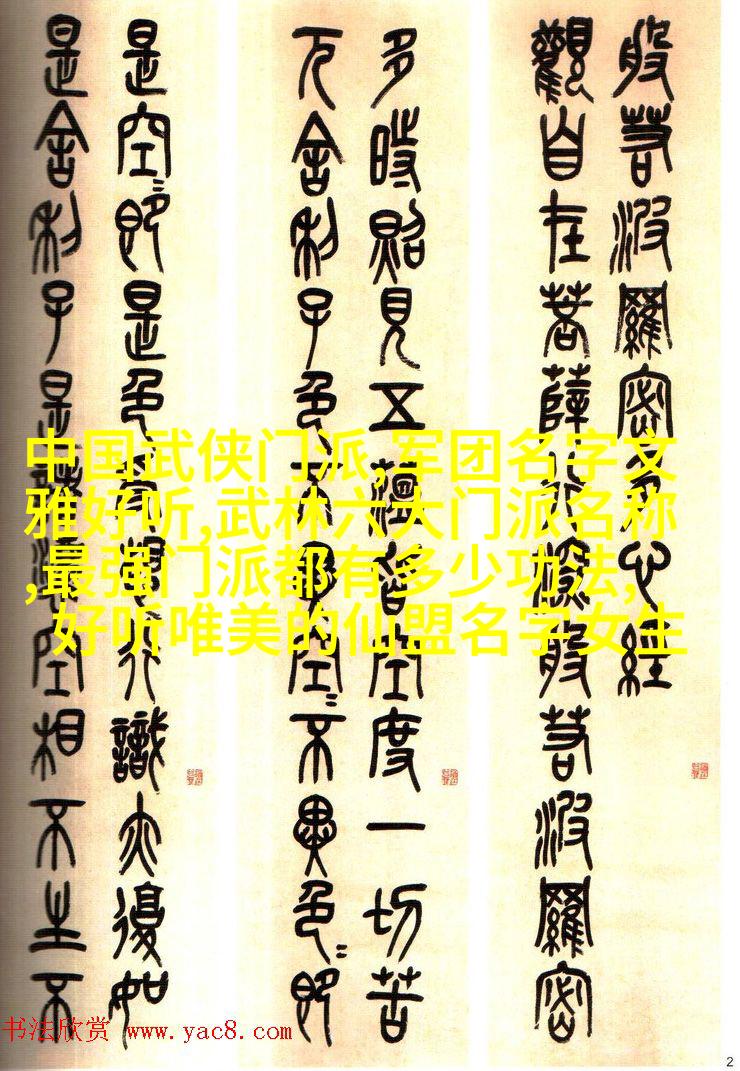 般若波羅密多心經
觀自在菩薩行深般若波羅密
多時照見五蘊皆空度一切苦
厄舍利子色不異空〻不異色〻即
是空〻即是色受想行識亦復如
是舍利子是諸法空相不生不
中国武侠门派,军团名字文
雅好听,武林六大门派名称
,最强门派都有多少功法,
好听唯美的仙盟名字女生
书法欣赏 www.yac8.com
2